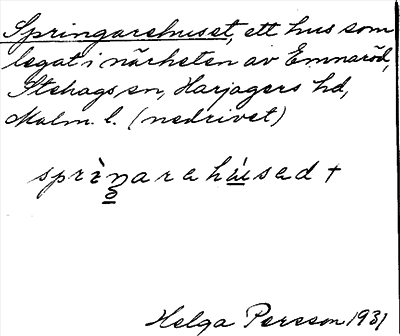 Springarehuset, ett hus som
legat i närheten av Emnaröd,
Stehags sn, Harjagers hd,
Malm. l. (nedrivet)
sprìn̥arahúsad +
Helga Persson 1931